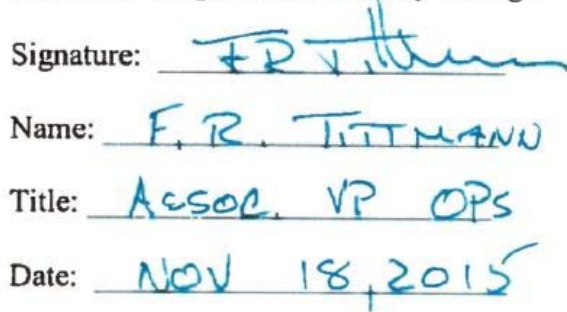 Signature: FR Tittmann
Name: F. R. TITTMANN
Title: ASSOC. VP OPS
Date: NOV 18, 2015